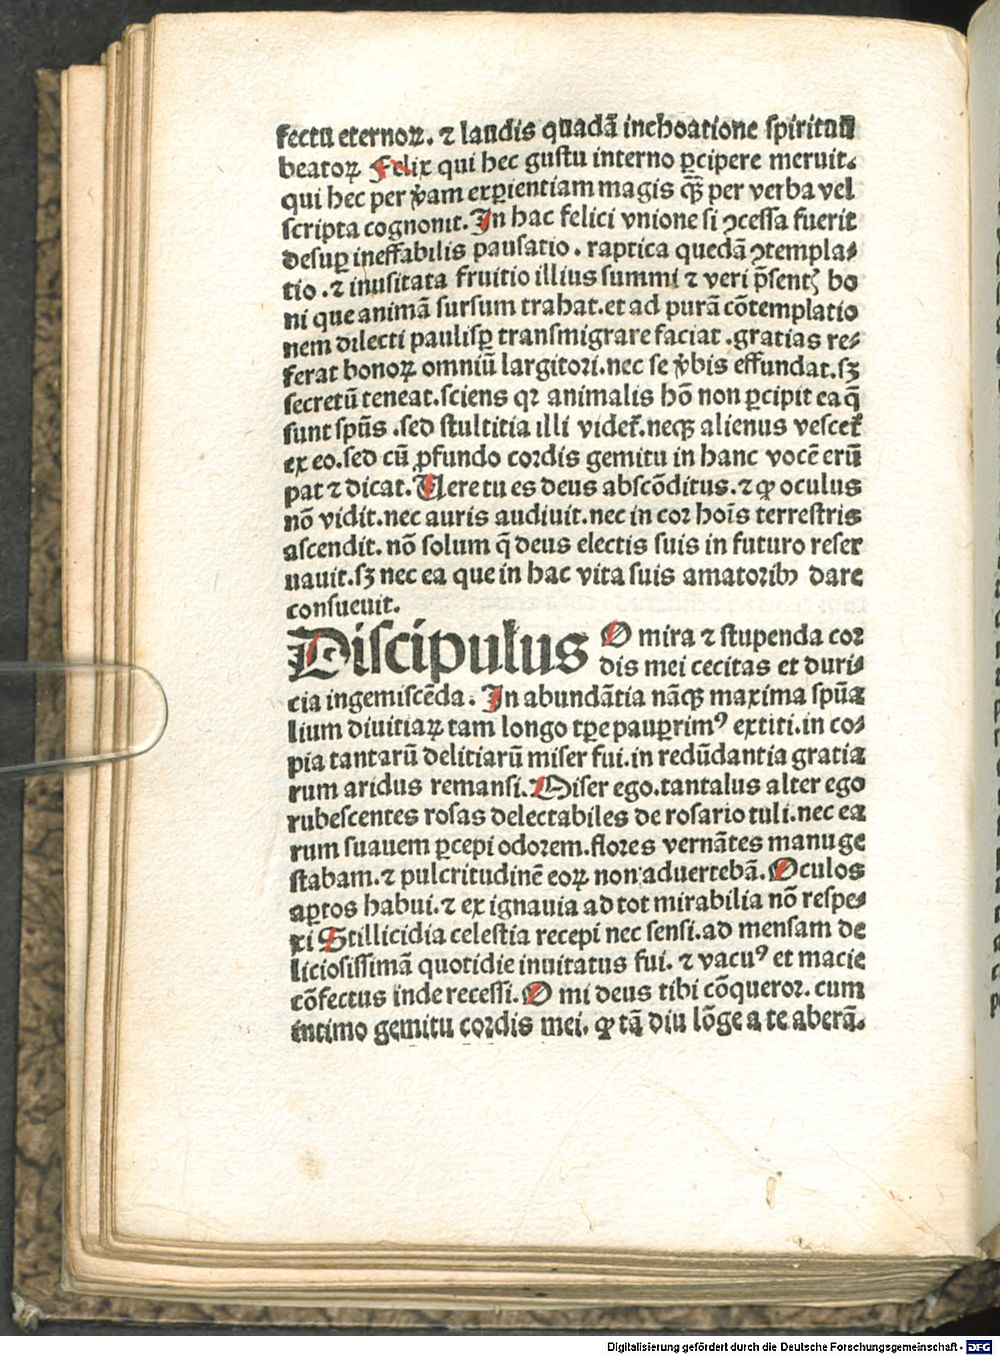 fectu eternoꝝ. ⁊ laudis quadā inchoatione spirituū
beatoꝝ Felix qui hec gustu interno ꝑcipere meruit.
qui hec per v̓am exꝑientiam magis q̄ꝫ per verba vel
scripta cognouit. In hac felici vnione si ꝯcessa fuerit
desuꝑ ineffabilis pausatio . raptica quedā ꝯtempla⸗
tio . ⁊ inusitata fruitio illius summi ⁊ veri p̄sentꝭ bo
ni que animā sursum trahat. et ad purā cōtemplatio
nem dilecti paulisꝑ transmigrare faciat . gratias re⸗
ferat bonoꝝ omniū largitori. nec se v̓bis effundat. sꝫ
secretū teneat. sciens qꝛ animalis hō non ꝑcipit ea q̄
sunt spūs . sed stultitia illi videt᷑. neqꝫ alienus vescet᷑
ex eo. sed cū ꝓfundo cordis gemitu in hanc vocē erū
pat ⁊ dicat. Uere tu es deus abscōditus. ⁊ ꝙ oculus
nō vidit. nec auris audiuit. nec in cor hoīs terrestris
ascendit. nō solum q̄ deus electis suis in futuro reser
uauit. sꝫ nec ea que in hac vita suis amatoribꝰ dare
consueuit.
Discipulus O mira ⁊ stupenda cor
dis mei cecitas et duri⸗
cia ingemiscēda . In abundātia nāqꝫ maxima spūa
lium diuitiaꝝ tam longo tꝑe pauꝑrimꝰ extiti. in co⸗
pia tantarū delitiarū miser fui. in redūdantia gratia
rum aridus remansi. Miser ego. tantalus alter ego
rubescentes rosas delectabiles de rosario tuli. nec ea
rum suauem ꝑcepi odorem. flores vernātes manu ge
stabam. ⁊ pulcritudinē eoꝝ non aduertebā. Oculos
aꝑtos habui. ⁊ ex ignauia ad tot mirabilia nō respe⸗
xi Stillicidia celestia recepi nec sensi. ad mensam de
liciosissimā quotidie inuitatus fui. ⁊ vacuꝰ et macie
cōfectus inde recessi. O mi deus tibi cōqueror. cum
intimo gemitu cordis mei. ꝙ tā diu lōge a te aberā.
Digitalisierung gefördert durch die Deutsche Forschungsgemeinschaft - DFG